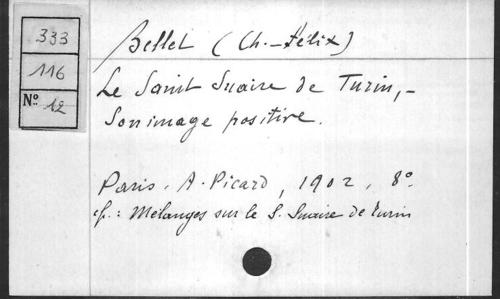 333
116
No. 12
Bellet (Ch.-Félix)
Le Saint Suaire de Turin,-
Son image positive.
Paris. A. Picard, 1902, 8o.
cf.: Mélanges sur le S. Suaire de Turin